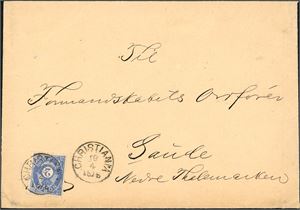 Til
Formandskabets Ordfører
Saude
Nedre Thelemarken
CHRISTIANIA
19
4